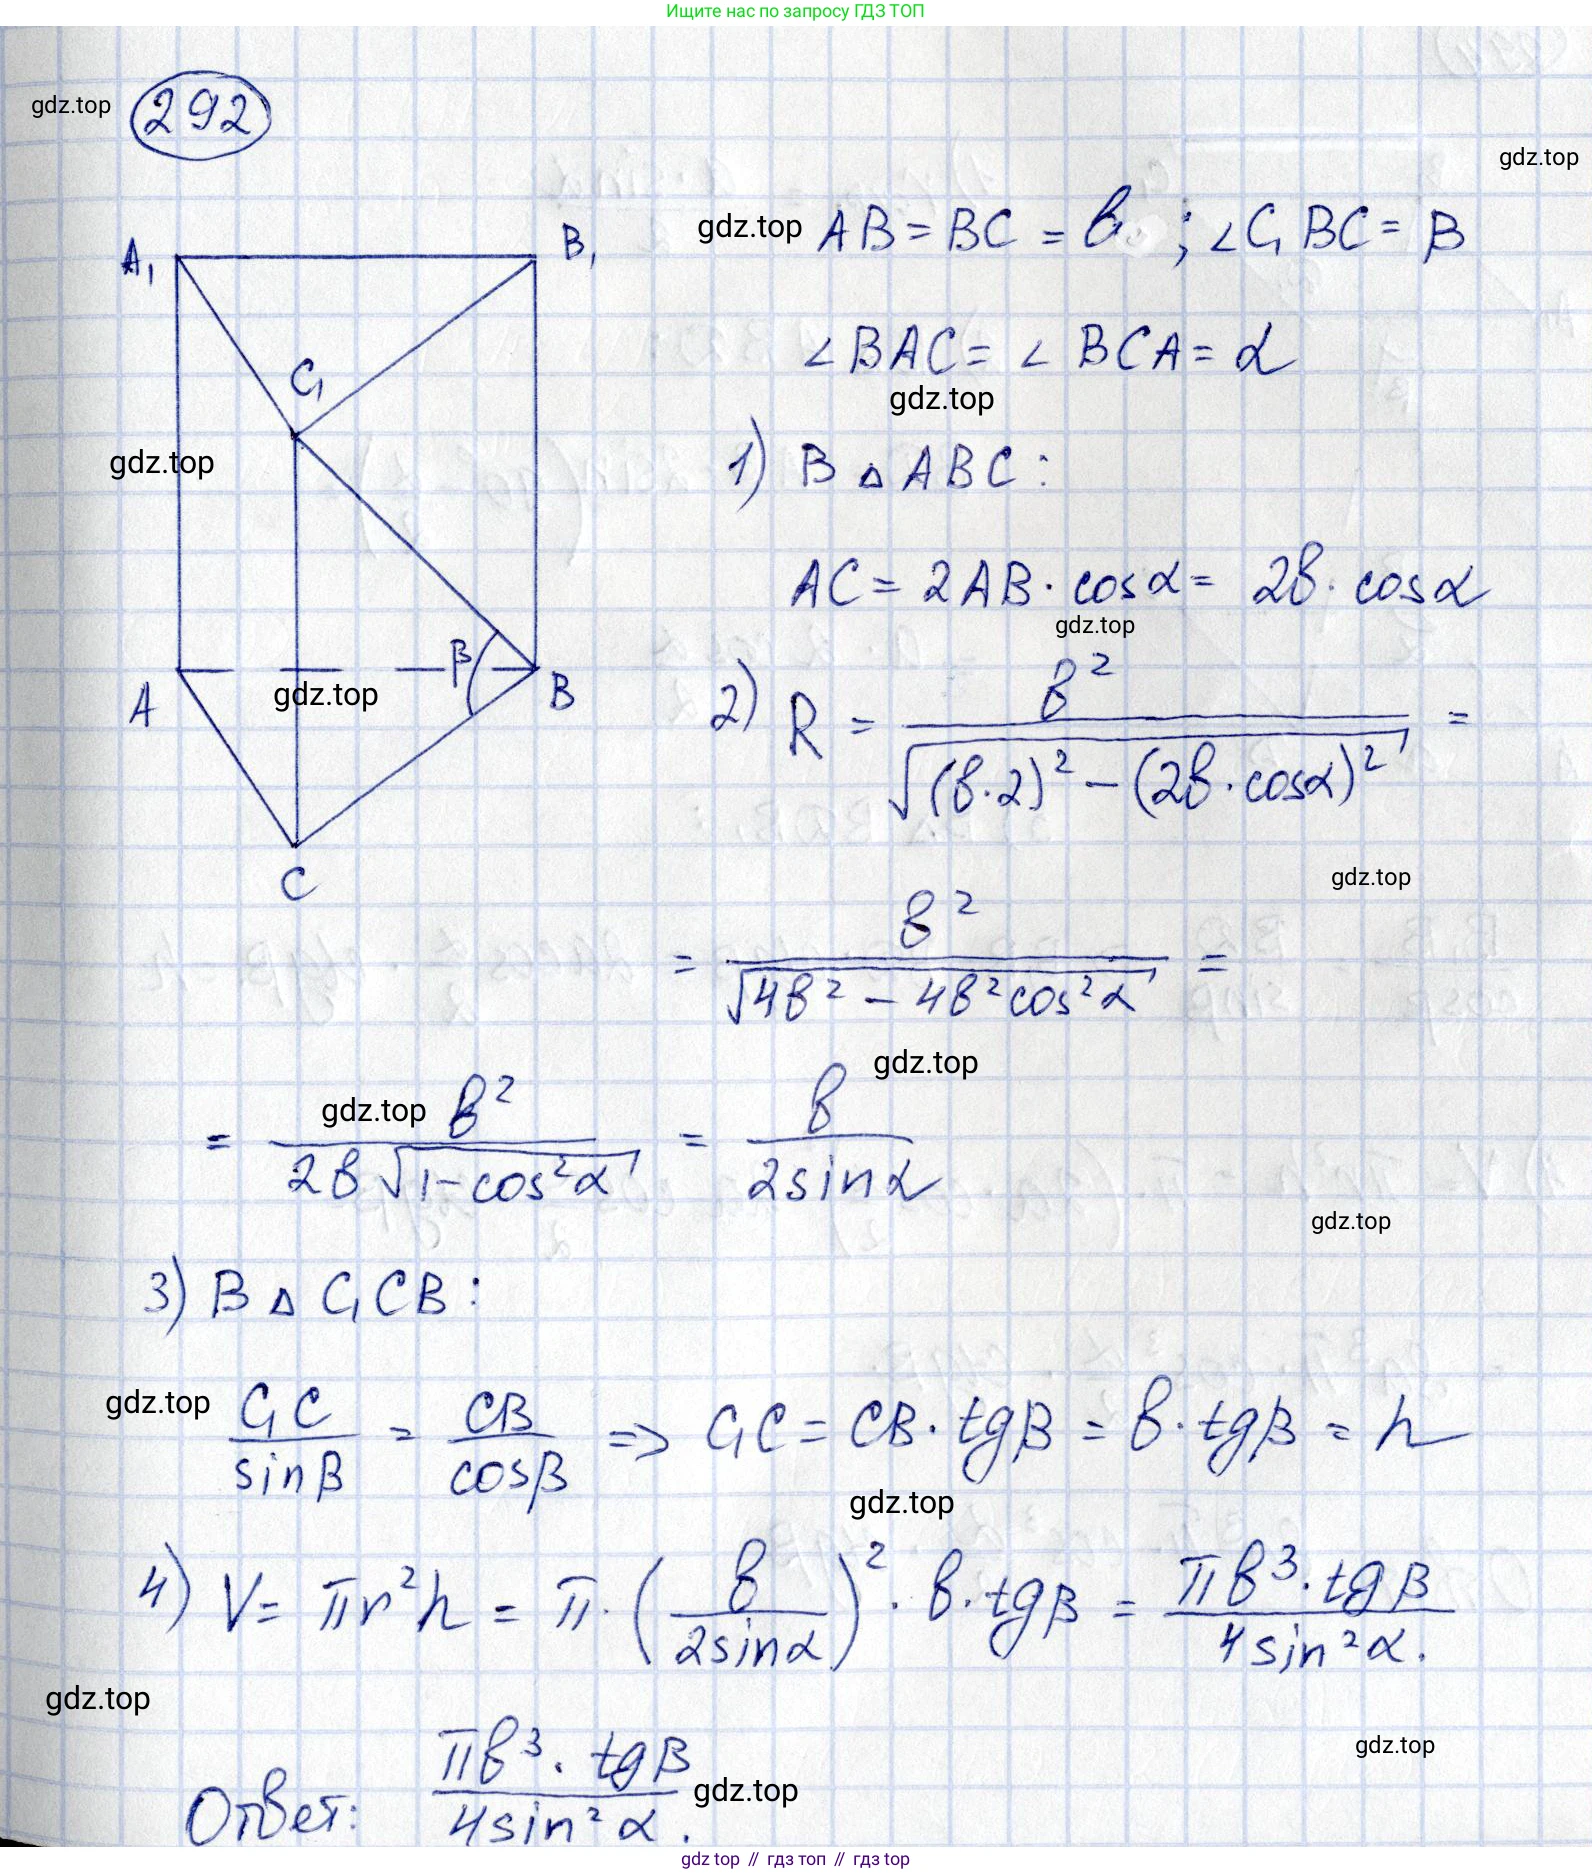 Ищите нас по запросу ГДЗ ТОП
292
gdz.top
gdz.top
gdz.top AB = BC = b ; ∠C₁BC = β
A₁
B₁
∠BAC = ∠BCA = α
gdz.top
C₁
gdz.top
1) В △ABC:
AC = 2AB · cosα = 2b · cosα
gdz.top
β
A
gdz.top
B
C
2) R = b² / √((b·2)² − (2b · cosα)²) =
gdz.top
= b² / √(4b² − 4b²cos²α) =
gdz.top
gdz.top
= b² / 2b√(1−cos²α) = b / 2sinα
gdz.top
3) В △C₁CB:
gdz.top
C₁C / sinβ = CB / cosβ => C₁C = CB · tgβ = b · tgβ = h
gdz.top
4) V = πr²h = π · (b / 2sinα)² · b · tgβ = πb³ · tgβ / 4sin²α.
gdz.top
gdz.top
Ответ: πb³ · tgβ / 4sin²α.
gdz.top
gdz top // гдз топ // гдз top